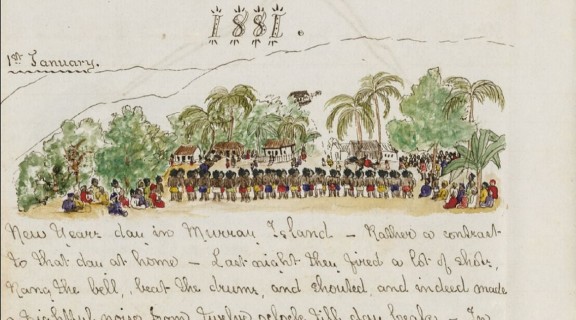 1881.
1st January.
New Years day in Murray Island – Rather a contrast
to that day at home – Last night they fired a lot of shots,
Rang the bell, beat the drums, and shouted and indeed made
a frightful noise from twelve oclock till day break – In